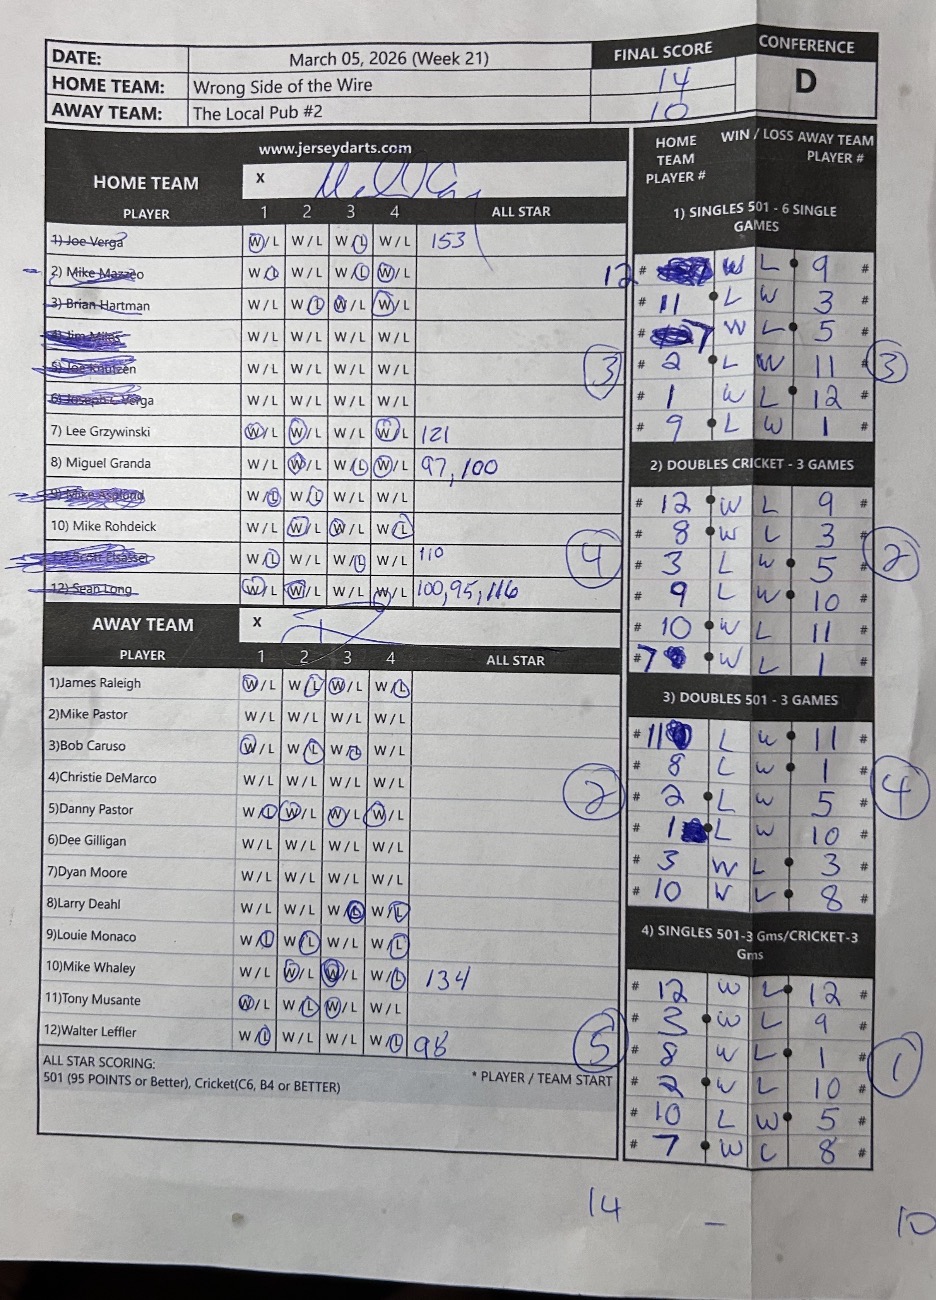 DATE: March 05, 2026 (Week 21) FINAL SCORE CONFERENCE
HOME TEAM: Wrong Side of the Wire 14 D
AWAY TEAM: The Local Pub #2 10
www.jerseydarts.com
HOME TEAM X
PLAYER 1 2 3 4 ALL STAR
1) Joe Verga W / L W / L W / L W / L 153
2) Mike Mazzeo W / L W / L W / L W / L
3) Brian Hartman W / L W / L W / L W / L
W / L W / L W / L W / L
W / L W / L W / L W / L 3
6) Joseph C Verga W / L W / L W / L W / L
7) Lee Grzywinski W / L W / L W / L W / L 121
8) Miguel Granda W / L W / L W / L W / L 97,100
9) Mike W / L W / L W / L W / L
10) Mike Rohdeick W / L W / L W / L W / L
11) Scott Elsasser W / L W / L W / L W / L 110 4
12) Sean Long W / L W / L W / L W / L 100,95,116
AWAY TEAM X
PLAYER 1 2 3 4 ALL STAR
1)James Raleigh W / L W / L W / L W / L
2)Mike Pastor W / L W / L W / L W / L
3)Bob Caruso W / L W / L W / L W / L
4)Christie DeMarco W / L W / L W / L W / L 2
5)Danny Pastor W / L W / L W / L W / L
6)Dee Gilligan W / L W / L W / L W / L
7)Dyan Moore W / L W / L W / L W / L
8)Larry Deahl W / L W / L W / L W / L
9)Louie Monaco W / L W / L W / L W / L
10)Mike Whaley W / L W / L W / L W / L 134
11)Tony Musante W / L W / L W / L W / L
12)Walter Leffler W / L W / L W / L W / L 98 5
ALL STAR SCORING:
501 (95 POINTS or Better), Cricket(C6, B4 or BETTER) * PLAYER / TEAM START
HOME TEAM PLAYER # WIN / LOSS AWAY TEAM PLAYER #
1) SINGLES 501 - 6 SINGLE
GAMES
12 # W L 9 #
# 11 L W 3 #
# 7 W L 5 #
# 2 L W 11 # 3
# 1 W L 12 #
# 9 L W 1 #
2) DOUBLES CRICKET - 3 GAMES
# 12 W L 9 #
# 8 W L 3 #
# 3 L W 5 # 2
# 9 L W 10 #
# 10 W L 11 #
# 7 W L 1 #
3) DOUBLES 501 - 3 GAMES
# 11 L W 11 #
# 8 L W 1 #
# 2 L W 5 # 4
# 1 L W 10 #
# 3 W L 3 #
# 10 W L 8 #
4) SINGLES 501-3 Gms/CRICKET-3
Gms
# 12 W L 12 #
# 3 W L 9 #
# 8 W L 1 # 1
# 2 W L 10 #
# 10 L W 5 #
# 7 W L 8 #
14 - 10